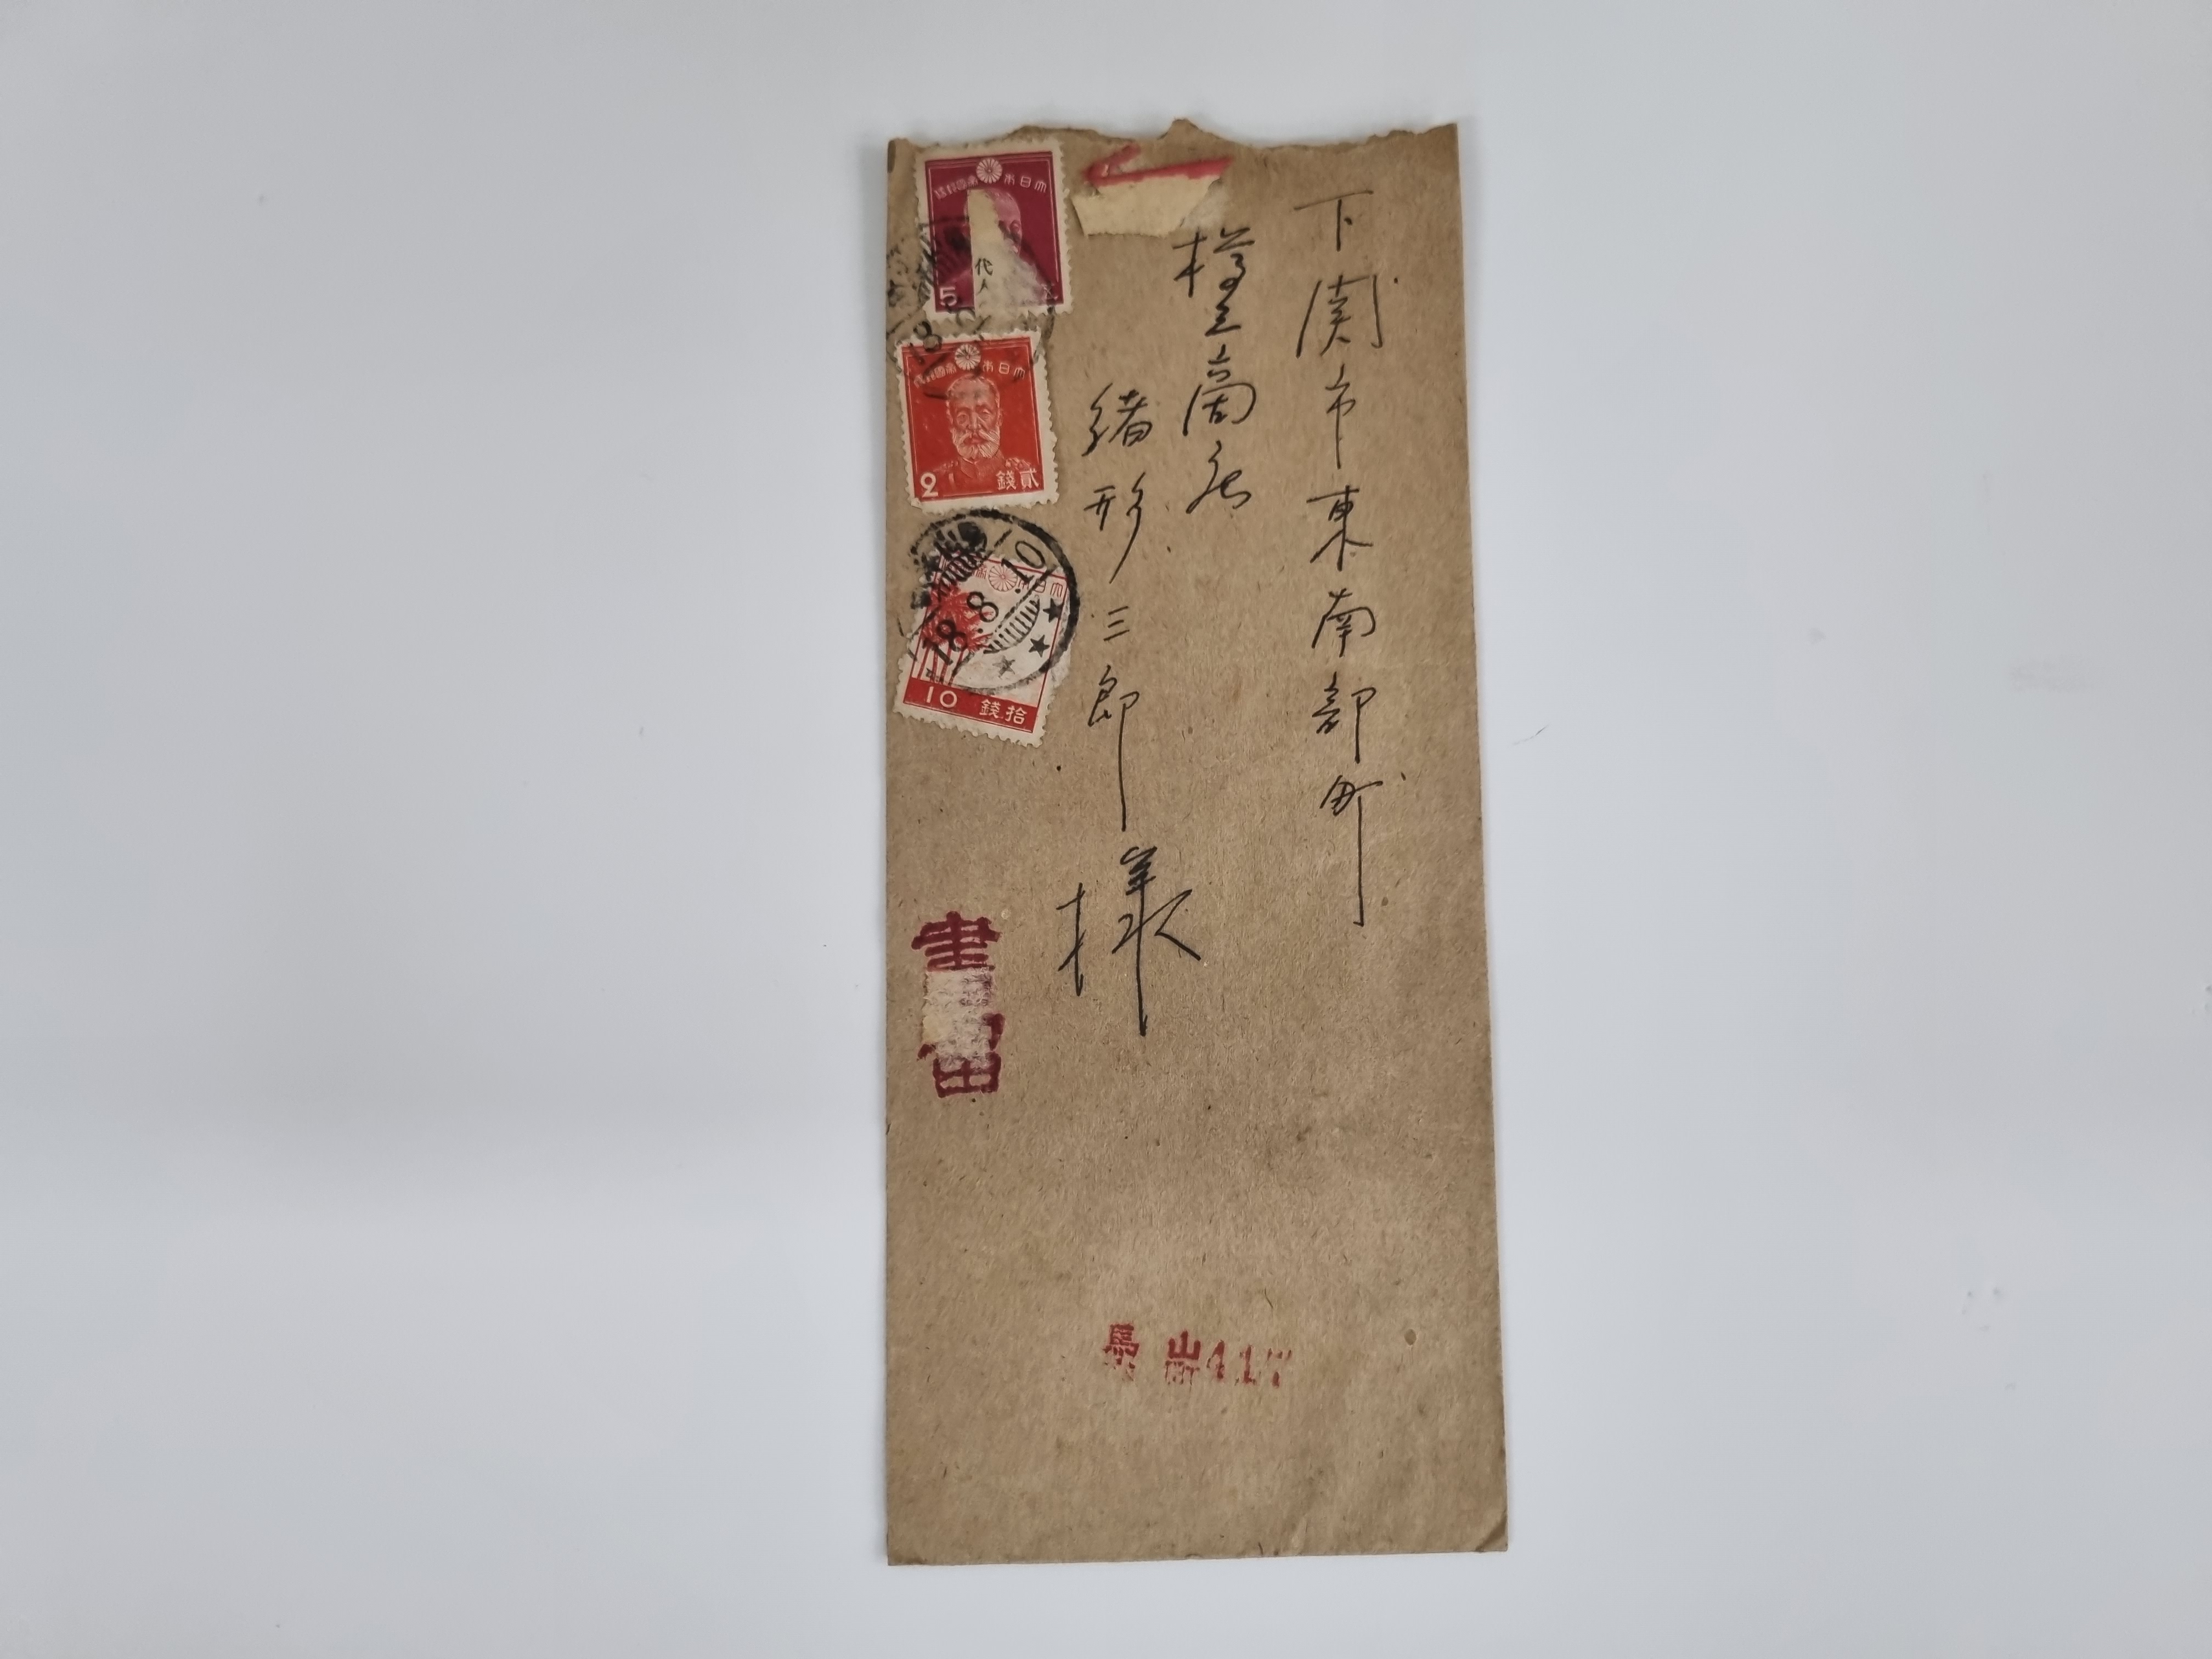 下関市東南部町
樽工商店
緒形三郎様
大日本帝國郵便
代人
5
大日本帝國郵便
2 貳錢
大日本帝
18.8.10
10 拾錢
書留
417